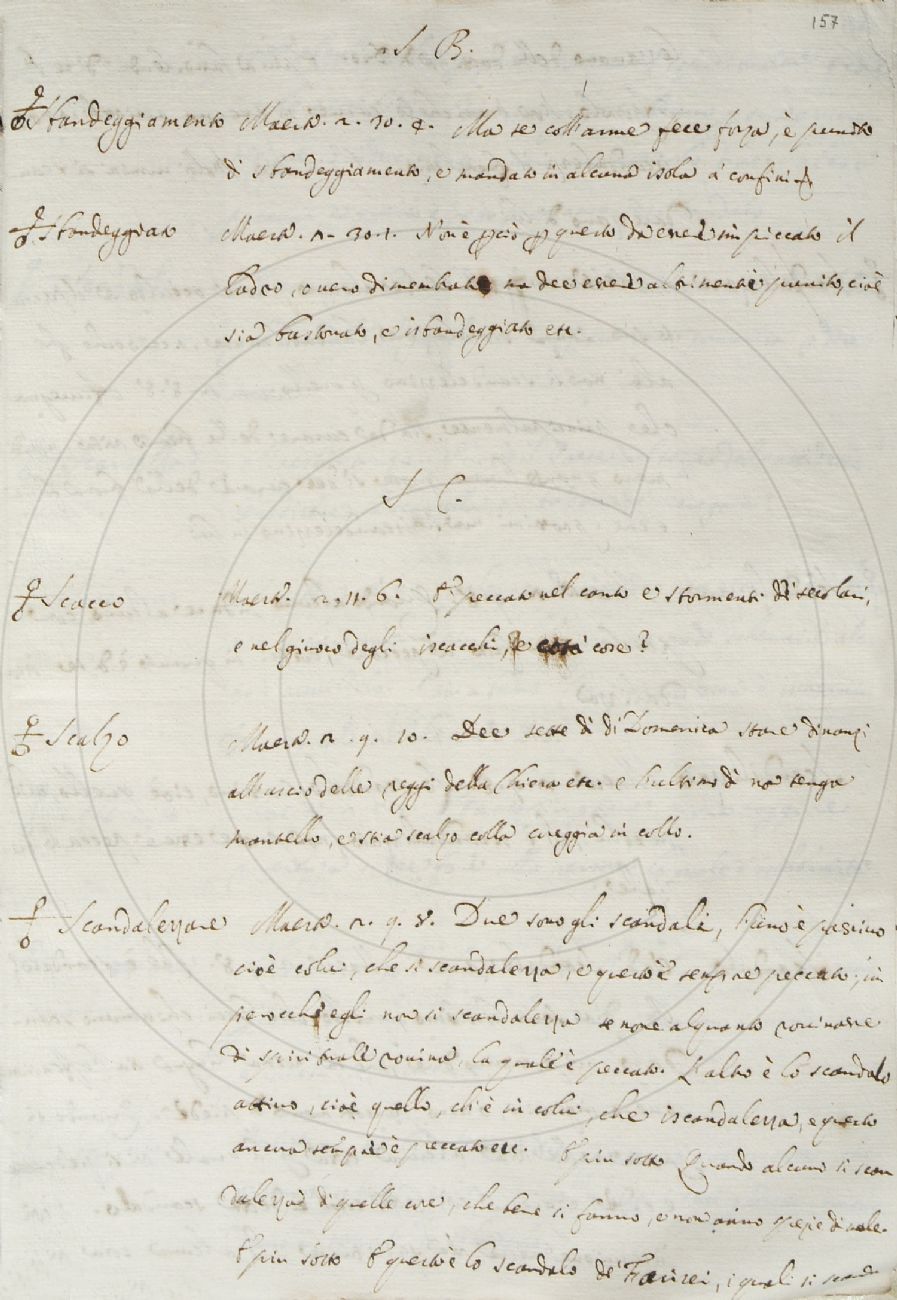 157
S B.
Sbandeggiamento Maestr. 2. 30. 4. Ma se coll'arme fece forza, è punito
di sbandeggiamento, e mandato in alcuna isola a' confini
Sbandeggiar Maestr. 2. 30. 1. Non è pciò p questo da essere impiccato il
Ladro, overo dimembrato ma dee essere altrimenti punito, cioè
sia bastonato, e isbandeggiato etc.
S C.
Scacco Maestr. 2. 11. 6. È peccato nel canto e stormenti di secolari,
e nel giuoco degli iscacchi, e cose?
Scalzo Maestr. 2. 9. 10. Dee sette dì di Domenica stare dinanzi
all'uscio delle reggi della Chiesa etc. e l'ultimo dì no tenga
mantello, e stia scalzo colla coreggia in collo.
Scandalezzare Maestr. 2. 9. 8. Due sono gli scandali, l'uno è passivo
cioè colui, che si scandalezza, e questo è sempre peccato, im
perocchè egli non si scandalezza se none alquanto rovinasse
di spirituale rovina, la quale è peccato. L'altro è lo scandalo
attivo, cioè quello, ch'è in colui, che iscandalezza, e questo
ancora sempre è peccato etc. E più sotto Quando alcuni si scan
dalezza di quelle cose, che bene si fanno, e non anno spezie di male.
E più sotto E questo è lo scandalo de' Farisei, i quali si scanda